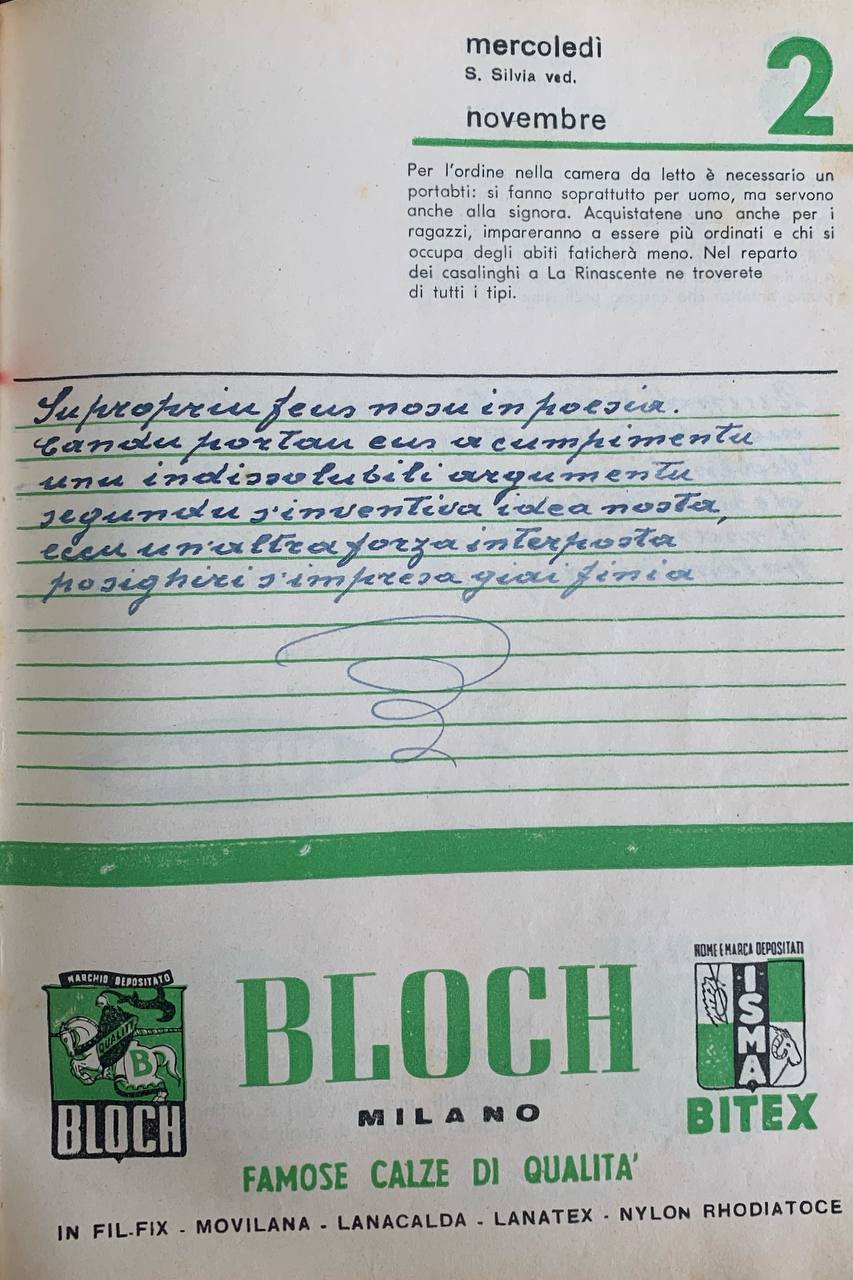 mercoledì
S. Silvia ved.
novembre
2
Per l'ordine nella camera da letto è necessario un
portabti: si fanno soprattutto per uomo, ma servono
anche alla signora. Acquistatene uno anche per i
ragazzi, impareranno a essere più ordinati e chi si
occupa degli abiti faticherà meno. Nel reparto
dei casalinghi a La Rinascente ne troverete
di tutti i tipi.
Su propriu feus nosu in poesia.
Candu portau eus a cumpimentu
unu indissolubili argumentu
segundu s'inventiva idea nosta,
eccu un'altra forza interposta
po sighiri s'impresa giai finia
MARCHIO DEPOSITATO
QUALITY
B
BLOCH
BLOCH
MILANO
FAMOSE CALZE DI QUALITA'
NOME E MARCA DEPOSITATI
ISMA
BITEX
IN FIL-FIX - MOVILANA - LANACALDA - LANATEX - NYLON RHODIATOCE